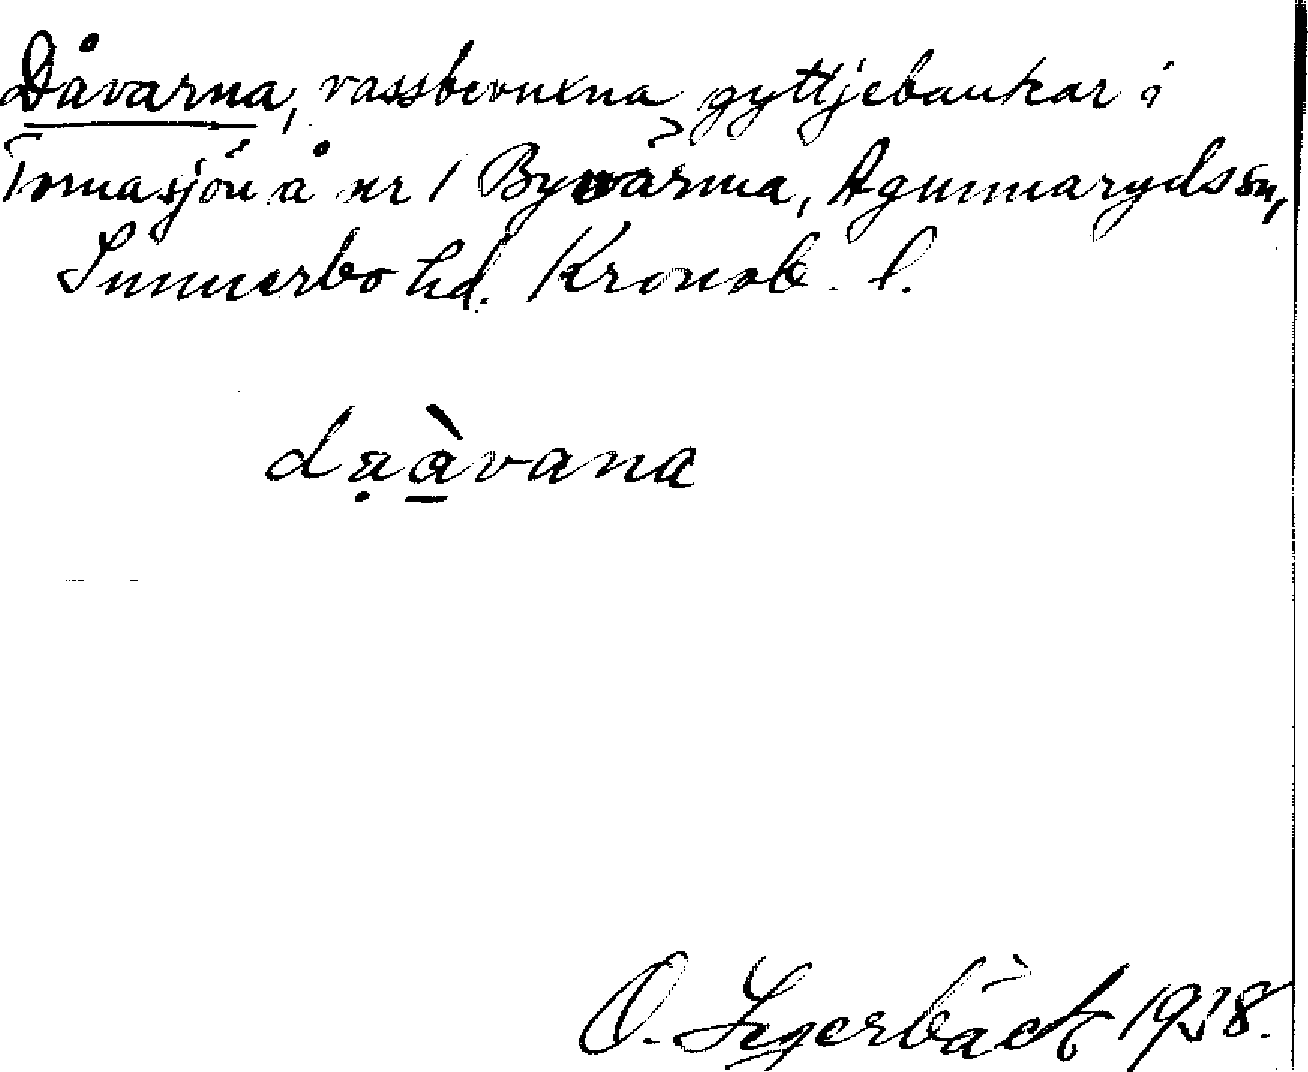 Dåvarna, vassbevuxna gyttjebankar i
Tomasjön å nr 1 Byvärma, Agunnaryds sn,
Sunnerbo hd. Kronob. l.
dạà̱vana
O. Segerbäck 1938.